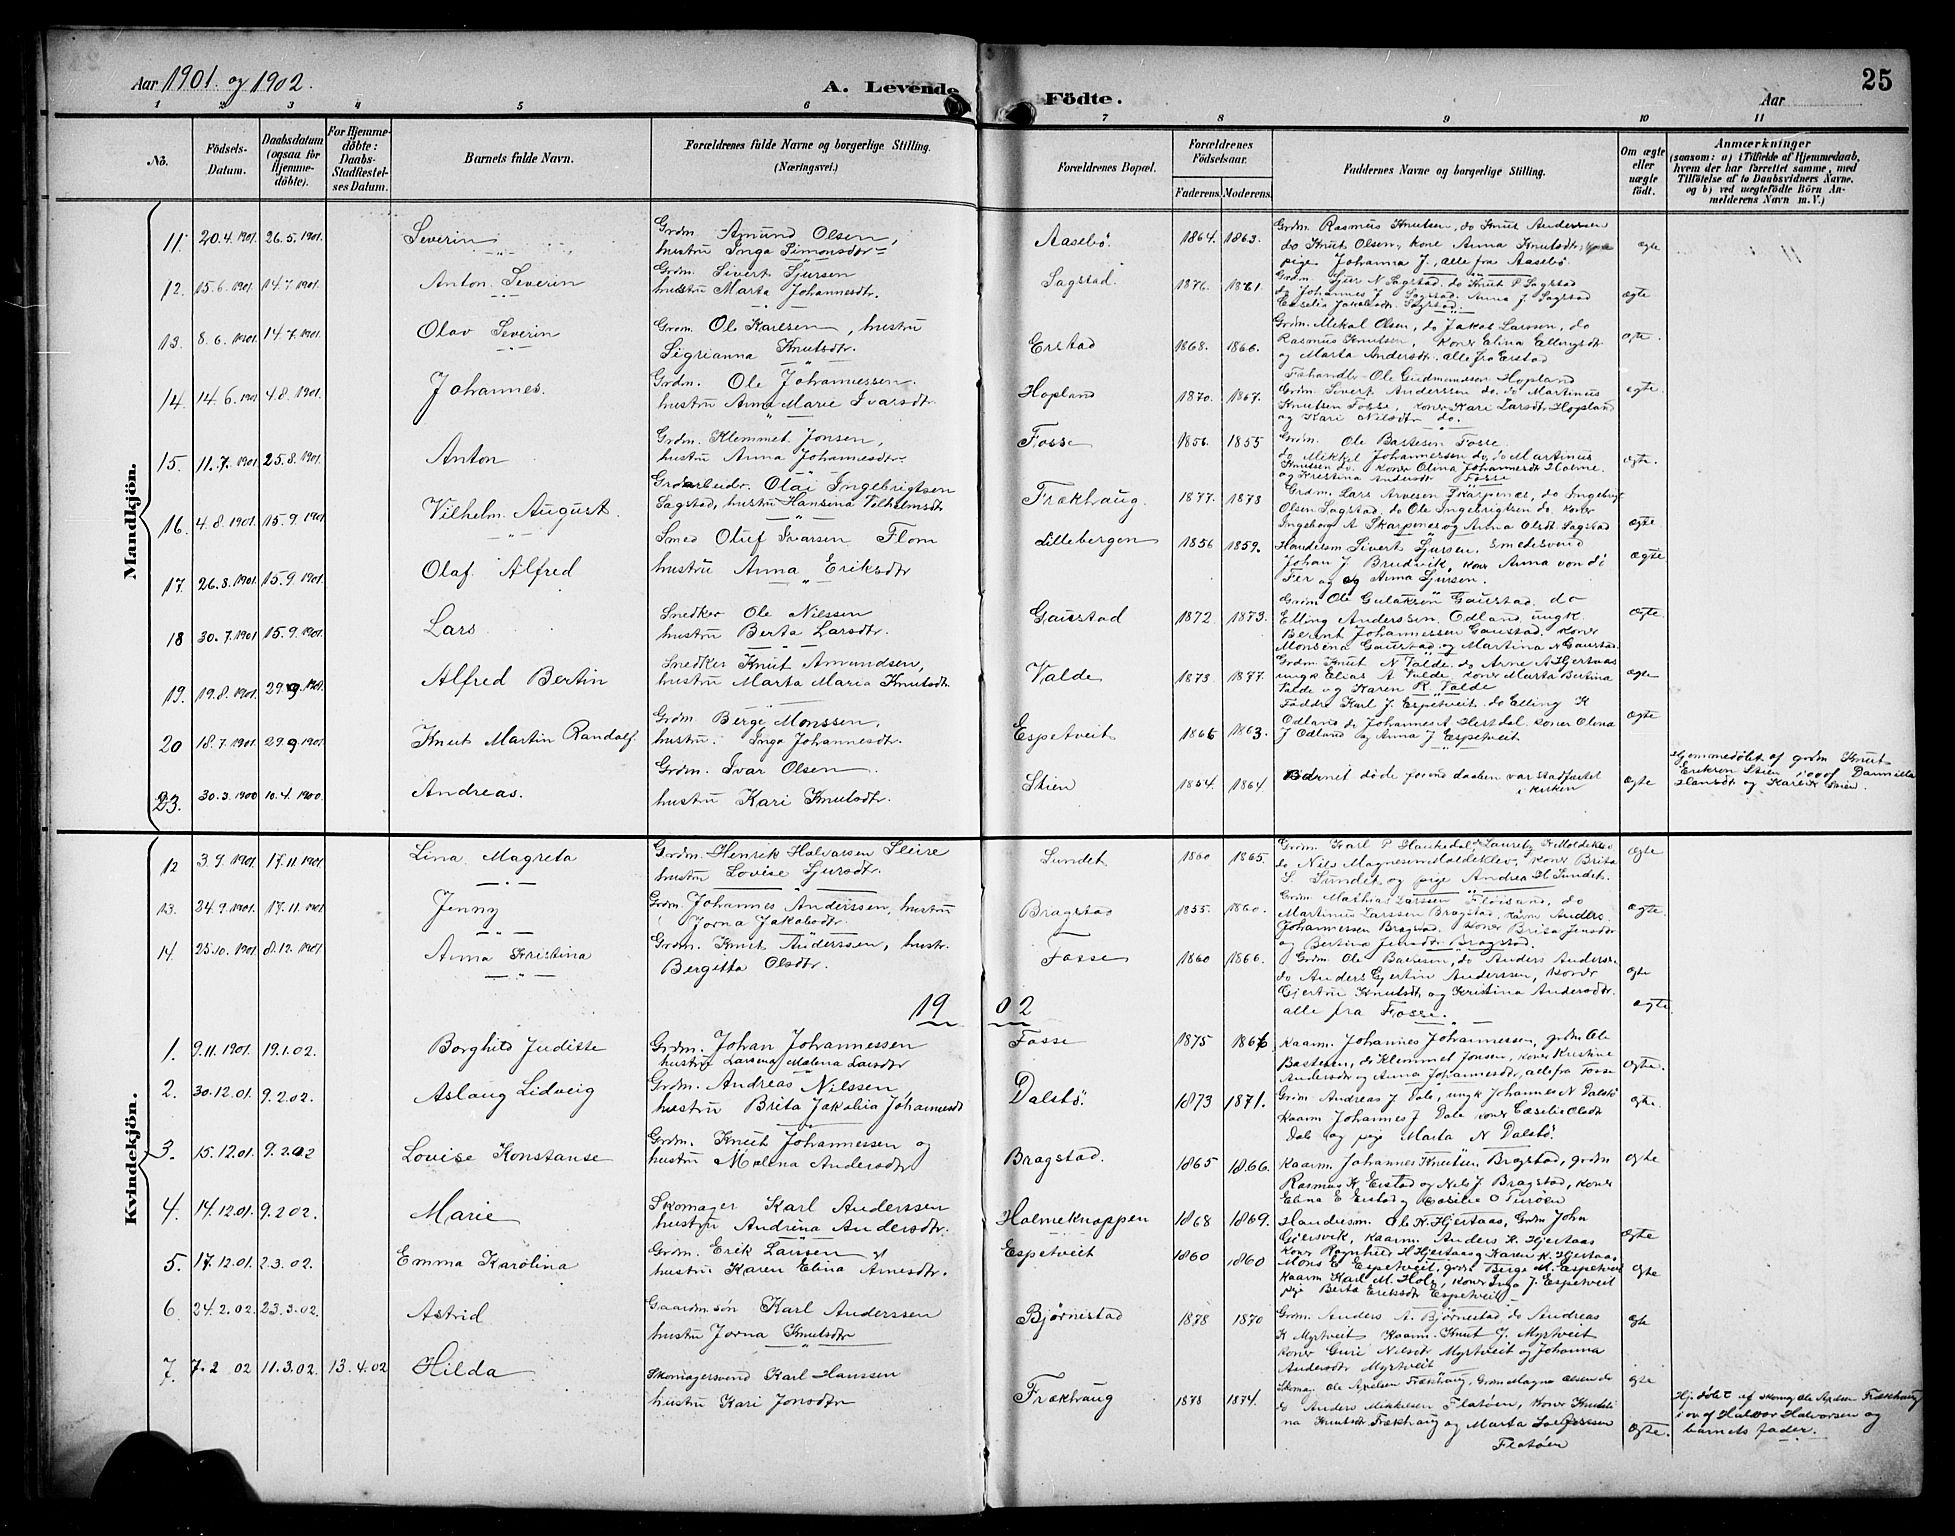 Aar 1901. og 1902.
A. Levende Födte.
Aar
25
1 2 3 4 5 6 7 8 9 10 11
No.
Födsels-Datum.
Daabsdatum (ogsaa for Hjemme-döbte).
For Hjemme-döbte: Daabs-Stadfæstel-ses Datum.
Barnets fulde Navn.
Forældrenes fulde Navne og borgerlige Stilling. (Næringsvei.)
Forældrenes Bopæl.
Forældrenes Födselsaar.
Faderens. Moderens.
Faddernes Navne og borgerlige Stilling.
Om ægte eller uægte födt.
Anmærkninger
(saasom: a) i Tilfælde af Hjemmedaab,
hvem der har forrettet samme, med
Tilföielse af to Daabsvidners Navne.
og b) ved uægtefödte Börn An-
melderens Navn m. V.)
Mandkjön.
11. 20.4.1901. 26.5.1901. Severin Grdm. Amund Olsen, hustru Inga Simonsdtr. Aasebö. 1864. 1863. Grdm. Rasmus Knutsen, do Knut Anderssen do Knut Olsen, kone Anna Knutsdtr, pige Johanna J., alle fra Aasebö. ægte
12. 15.6.1901. 14.7.1901. Anton Severin Grdm. Sivert Sjursen hustru Marta Johannesdtr. Sagstad. 1876. 1871. Grdm. Sjur N Sagstad. do Knut P Sagstad do Johannes J Sagstad. Anna J Sagstad Cecelia Jakobsdtr. Sagstad. ægte
13. 8.6.1901. 14.7.1901. Olav Severin Grdm. Ole Karlsen, hustru Sigrianna Knutsdtr. Erstad 1868. 1866. Grdm. Mikal Olsen, do Jakob Larssen, do Rasmus Knutsen, Koner Elina Ellingsdtr og Marta Andersdtr. alle fra Erstad ægte.
14. 14.6.1901 4.8.1901. Johannes. Grdm. Ole Johannessen. hustru Anna Marie Ivarsdtr. Hopland 1870. 1867. Føhandler Ole Gudmundsen Hopland Grdm. Sivert Anderssen do, do Martinus Knutsen Fosse, koner Kari Larsdtr Hopland og Kari Nilsdtr do. ægte.
15. 11.7.1901 25.8.1901. Anton Grdm. Klemmet Jonsen, hustru Anna Johannesdtr. Fosse 1856. 1855 Grdm. Ole Bastesen Fosse. do Mikkel Johannessen do, do Martinus Knutsen do. koner Olina Johannesdtr Holme. og Kristina Andersdtr Fosse ægte.
16. 4.8.1901. 15.9.1901 Vilhelm August. Grdarbeider Olai Ingebrigtsen Sagstad, hustru Hansina Vilhelmsdtr Frækhaug. 1877. 1873 Grdm. Lars Arvesen Skarpenes, do Ingebrigt Olsen Sagstad. do Ole Ingebrigtsen do. koner Ingeborg A Skarpenes og Anna Olsdtr Sagstad ægte
17. 26.8.1901. 15.9.1901. Olaf Alfred Smed Oluf Ivarsen Flom hustru Anna Eriksdtr Lillebergen 1856 1859. Handelsm. Sivert Sjursen. smedesvend Johan J. Brudvik, koner Anna von di Fer og Anna Sjursen. ægte
18 30.7.1901 15.9.1901 Lars. Snedker Ole Nilssen hustru Berta Larsdtr. Gaustad 1872. 1873. Grdm Ole Gulaksön Gaustad. do Elling Anderssen, Odland. ungk. Bernt Johannessen Gaustad. koner Monsena Gaustad. og Martina N Gaustad. ægte
19. 19.8.1901. 29.9.1901. Alfred Bertin Snedker Knut Amundsen, hustru Marta Maria Knutsdtr Valde 1873. 1877. Grdm. Knut N Valde. do Arne A Hjertaas ungk Elias A Valde, koner Marta Bertina Valde og Karen R. Valde ægte
20 18.7.1901 29.9.1901. Knut Martin Randolf. Grdm. Berge Monssen, hustru. Inga Johannesdtr. Espetveit 1866 1863. Faddr. Karl J. Espetveit. do Elling K Odland do Johannes A. Hertdal. koner Olena J Odland og Anna J Espetveit. ægte
23. 30.3.1900 10.4.1900. Andreas. Grdm. Ivar Olsen hustru Kari Knutsdtr. Skien 1854. 1864 Barnet døde forend daaben var stadfæstet i kirken ægte Hjemmedøbt af grdm Knut Eriksen Skien i ov. af Dannille Hansdtr og Kari K Skien.
Kvindekjön.
12 3.9.1901. 17.11.1901. Lina Magreta Grdm. Henrik Halvorsen Sleire hustru Lovise Sjursdtr. Sundet 1860 1865. Grdm. Karl P Haukedal, Lauretz K Moldeklev do Nils Magnesen Moldeklev, koner Brita S. Sundet og pige Andrea H Sundet. ægte
13. 24.9.1901. 17.11.1901 Jenny Grdm. Johannes Anderssen, hustru Jorna Jakobsdtr. Bragstad 1855. 1860. Grdm. Mathias Larssen Fløisand, do Martinus Larssen Bragstad, kaarm Anders Johannessen Bragstad. koner Brita Jensdtr og Bertina Jensdtr Bragstad. ægte.
14 25.10.1901 8.12.1901 Anna Kristina Grdm. Knut Anderssen, hustr. Bergitta Olsdtr. Fosse 1860 1866. Grdm. Ole Bastesen, do Anders Anderssen do Anders Gjertin Anderssen, koner Gjertrui Knutsdtr og Kristina Andersdtr. alle fra Fosse. ægte
1902
1. 9.11.1901. 19.1.02. Borghild Juditte Grdm. Johan Johannessen hustru Larsena Malena Larsdtr Fosse 1875 1876 Kaarm. Johannes Johannessen, grdm Ole Bastesen, do Klemmet Jonsen, koner Kristine Andersdtr og Anna Johannesdtr, alle fra Fosse ægte
2. 30.12.01. 9.2.02. Aslaug Lidveig Grdm. Andreas Nilssen, hustru Brita Jakobia Johannesdt Dalstö. 1873 1871. Grdm. Andreas J Dale, ungk Johannes N Dalstö kaarm Johannes J Dale koner Cæselie Olsdt Dale og pige Marta N Dalstö. ægte.
3. 15.12.01. 9.2.02 Lovise Konstanse Grdm. Knut Johannessen og hustru Malena Andersdtr Bragstad. 1865 1866. Kaarm. Johannes Knutsen Bragstad, grdm Rasmus K. Erstad og Nils J Bragstad, koner Elina E Erstad og Cecilie O Turöen ægte
4. 14.12.01. 9.2.02. Marie Skomager Karl Anderssen hustru Andrina Andersdtr. Holmeknappen 1868 1869. Handelsm. Ole K. Hjertaas, Grdm John Gjersvik, kaarm. Anders K. Hjertaas koner Ragnhild H Hjertaas og Karen K. Hjertaas ægte
5. 17.12.01. 2.3.02. Emma Karolina Grdm. Erik Larssen hustru Karen Elina Arnesdtr. Espetveit 1860 1860 Mons E Espetveit, grdm Berge M. Espetveit kaarm Karl M. Holz, koner Inga J. Espetveit pige Berta Eriksdtr Espetveit ægte
6 24.2.02. 23.3.02. Astrid Gaardm.sön Karl Anderssen hustru Jorna Knutsdtr Bjørnestad 1878 1870 Grdm. Anders A. Bjørnestad do Andreas K Myrtveit Kaarm. Knut J. Myrtveit koner Guri Nilsdtr Myrtveit og Johanna Andersdtr Myrtveit ægte
7. 7.2 02 11.3.02. 13.4.02 Hilda Skomagersvend Karl Hanssen hustru Kari Jonsdtr Frækhaug 1878 1874. Skomag. Ole Axelsen Frækhaug, Grdm Magne Olsen do do Anders Mikkelsen Flatøen, koner Knutina Knutsdtr Frækhaug og Marta Flatøen ægte. Hj.døbt af skomag Ole Axelsen Frækhaug i ov. af Halvor Halvorsen og barnets fader.